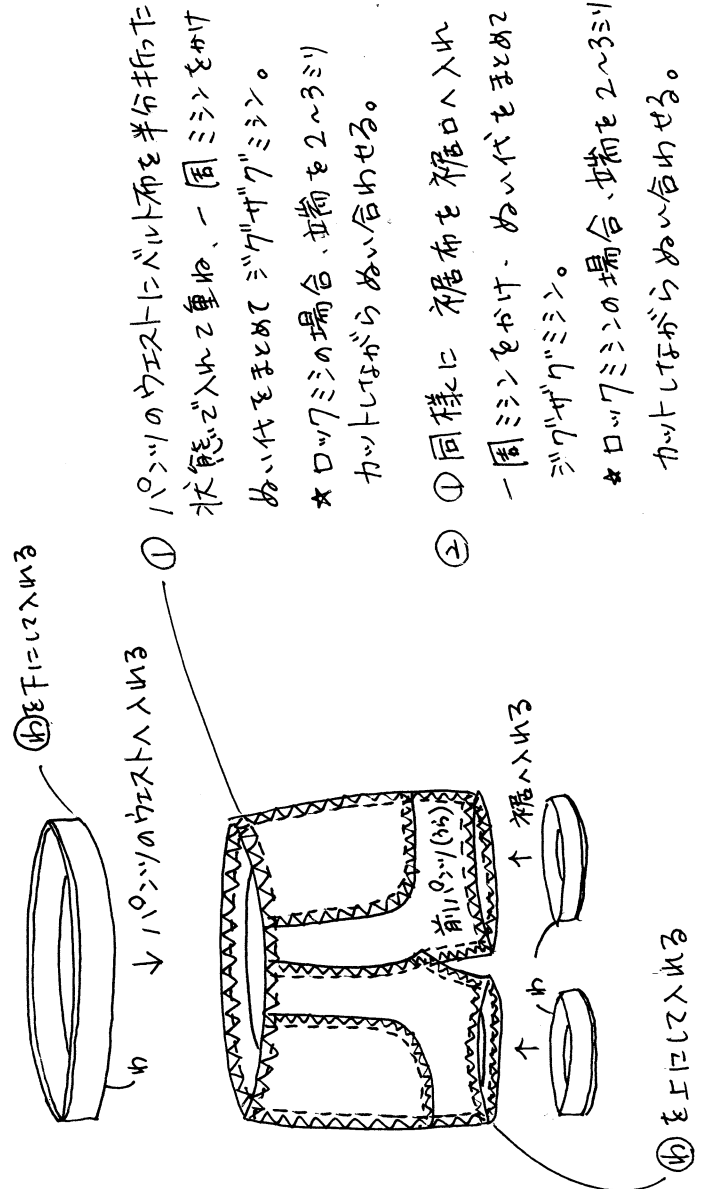 わを下にして入れる
↓パンツのウエストへ入れる
わ
前パンツ(うら)
↑
↑ 裾へ入れる
わ
わを上にして入れる
① パンツのウエストにベルト布を半分折った
状態で入れて重ね、一周ミシンをかけ
ぬい代をまとめてジグザグミシン。
★ロックミシンの場合、端を2〜3ミリ
カットしながらぬい合わせる。
② ①同様に 裾布を裾口へ入れ
一周ミシンをかけ、ぬい代をまとめて
ジグザグミシン。
★ロックミシンの場合、端を2〜3ミリ
カットしながらぬい合わせる。